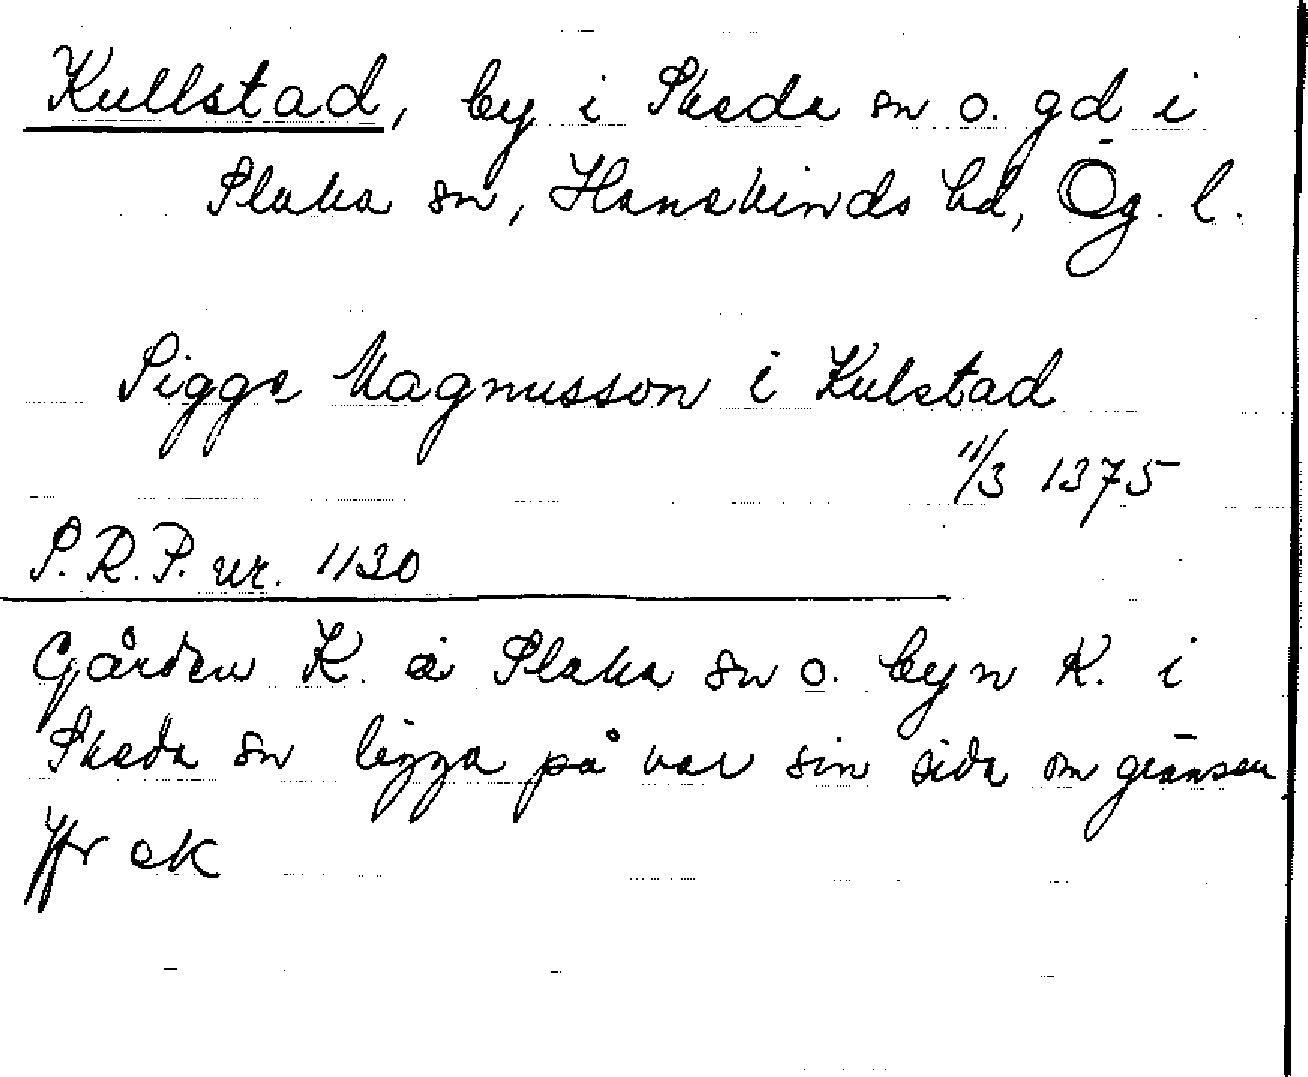 Kullstad, by i Skeda sn o. gd i
Slaka sn, Hanekinds hd, Ög. l.
Sigge Magnusson i Kulstad
11/3 1375
S.R.P. nr. 1130
Gården K. i Slaka sn o. byn K. i
Skeda sn ligga på var sin sida om gränsen
Jfr ek